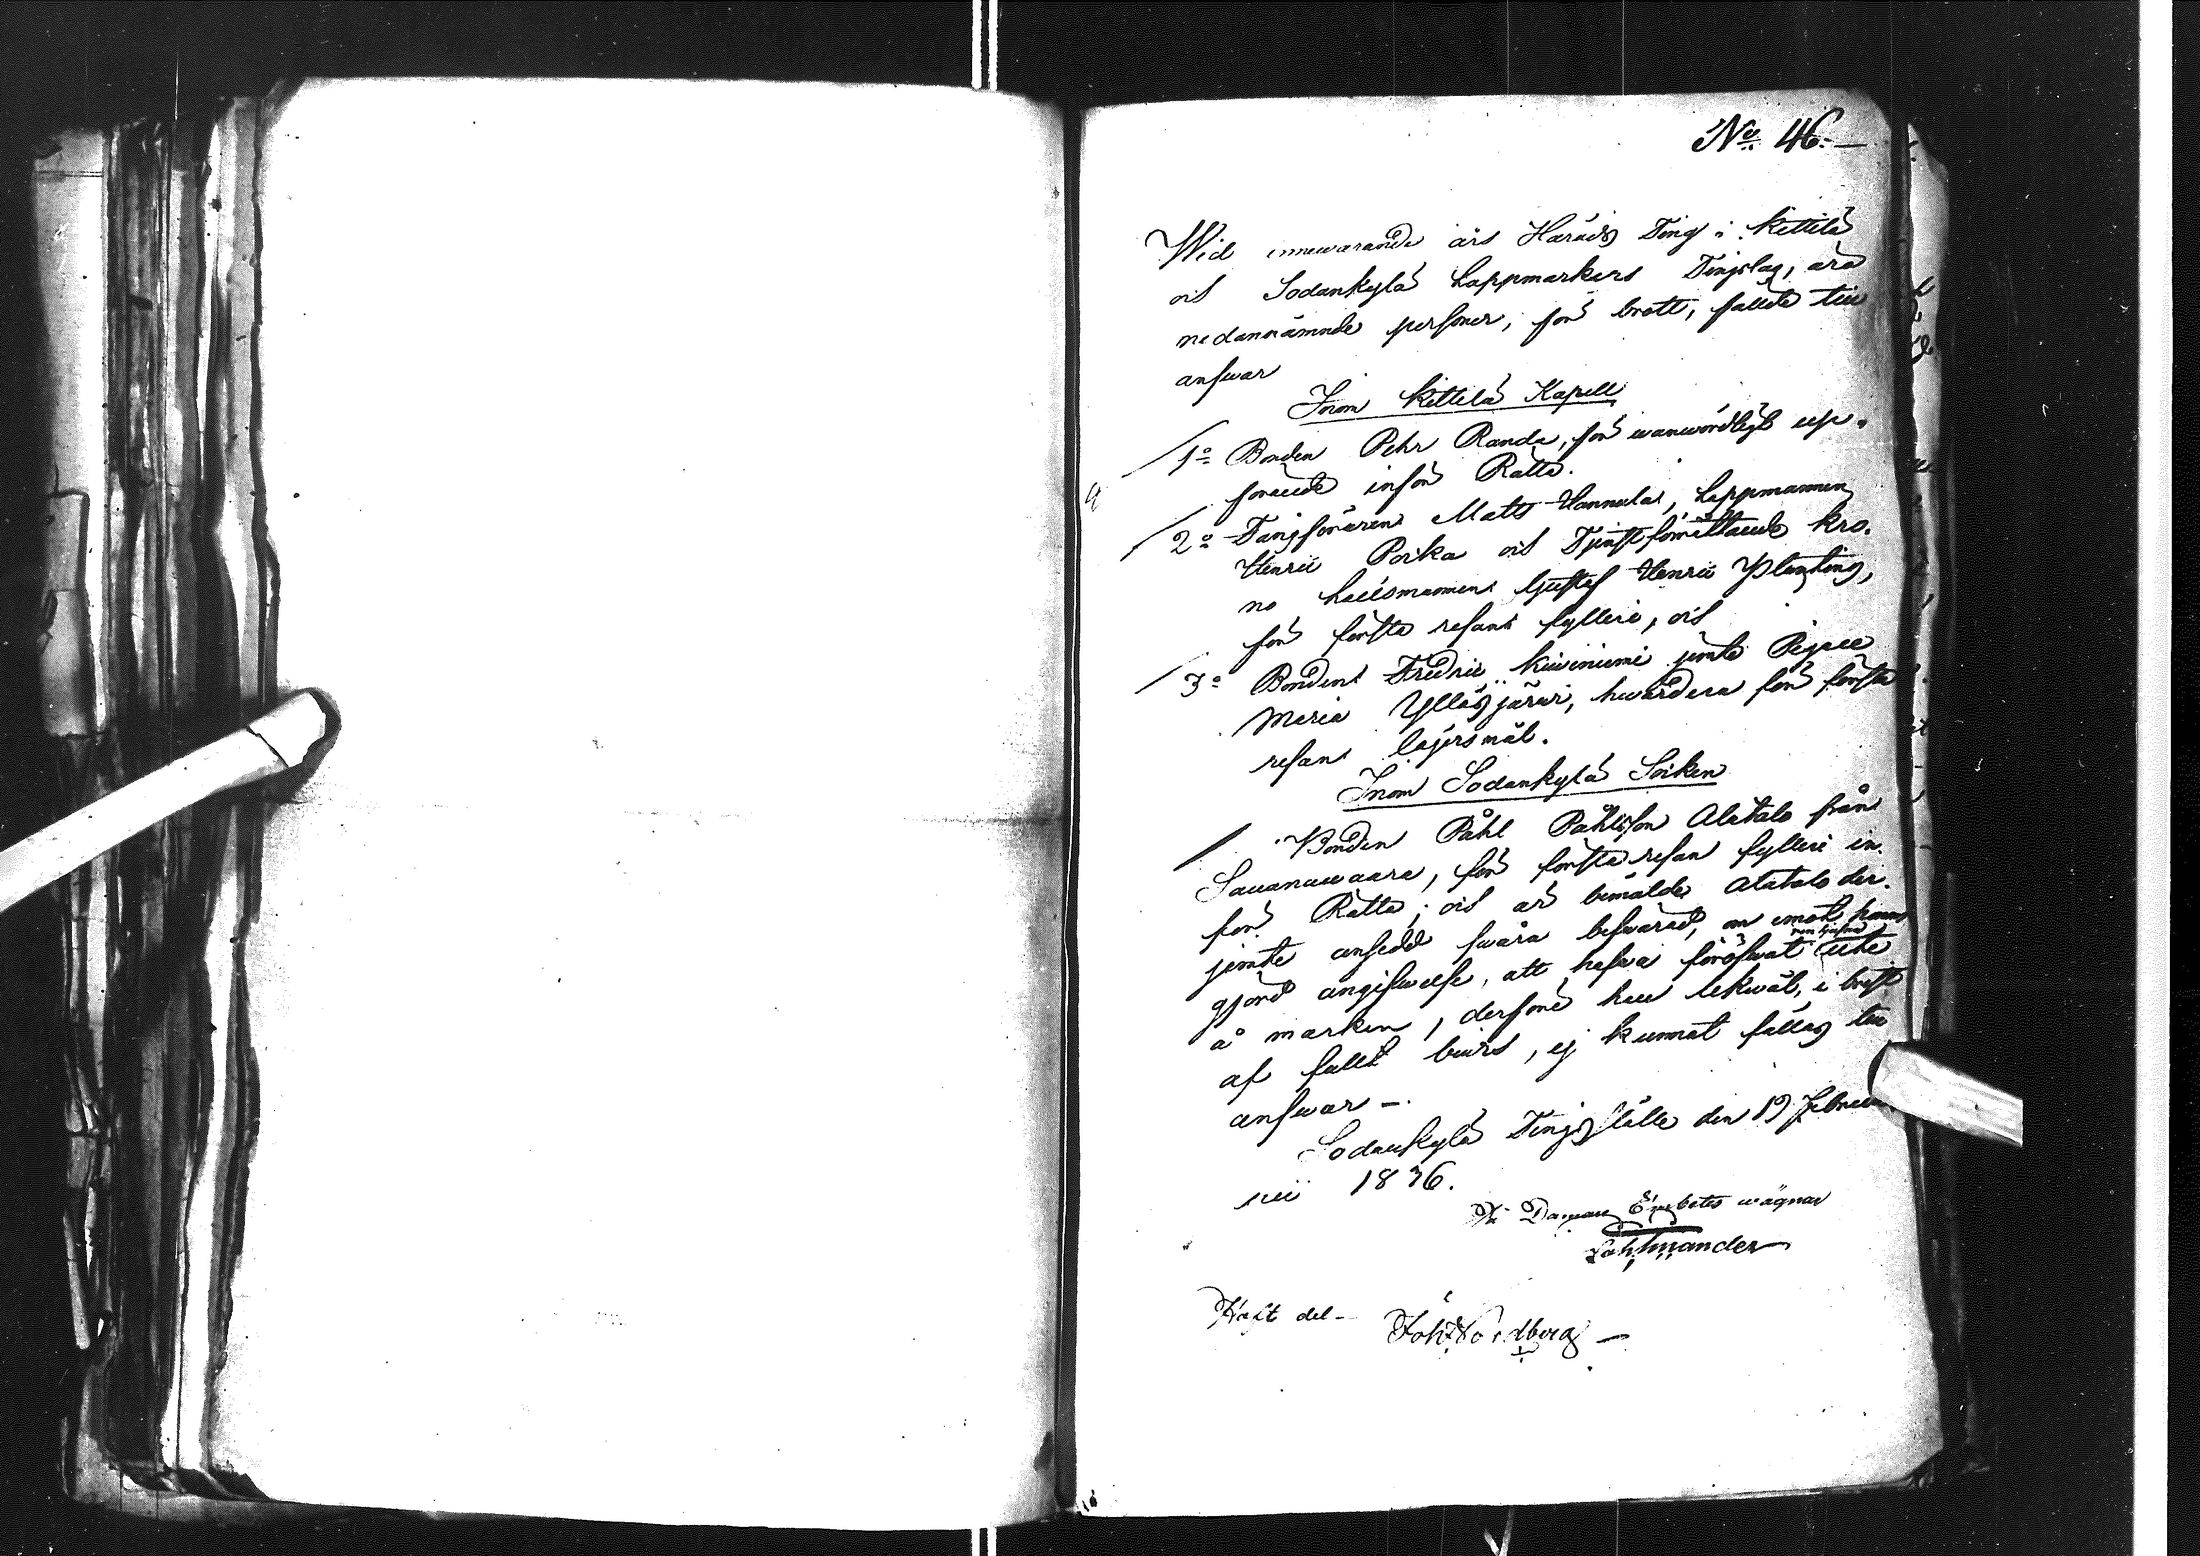 No 46.
Wid innewarande års Härads Ting i Kittilä
och Sodankylä Lappmarkers Tingslag, äro
nedannämnde personer, för brott, fällde till
answar
Inom Kittilä Kapell
1o Bonden Pehr Randa, för wanwördligt upp-
förande inför Rätta.
2o Matts Hannula, Lappmannen
Henric Porka och Tjenstförrättande Kro-
no Länsmannen Gustaf Henric Planting,
för första resans fylleri, och
3o Bonden Fredric Kiiviniemi jemte Pigan
Maria Ylläsjärvi, hwardera för första
resans lägersmål.
Inom Sodankylä Socken
Bonden Påhl Påhlsson Alatalo från
Sauanawaara, för första resan fylleri in-
för Rätta; och är bemälde Alatalo der-
jemte ansedd swåra beswärad, om emot honom
gjord angifwelse, att hafwa föröfwat
å marken, derföre han likwäl, i brist
af fullt bewis, ej kunnat fällas till
answar —.
Sodankylä Tingsställe den 19 Februa-
rii 1836.
På Domare Embetes wägnar
Lahhmander
Joh Nordberg —